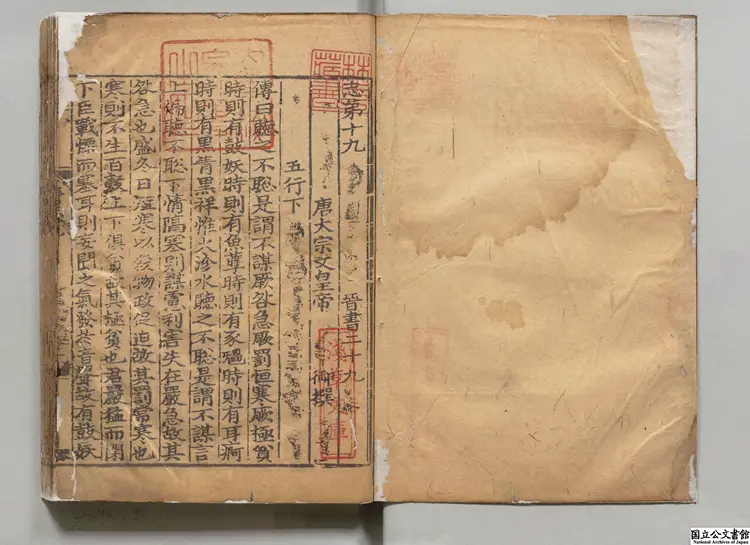 志第十九 晉書二十九
唐大宗文皇帝 御撰
五行下
傳曰聽之不聰是謂不謀厥咎急厥罰恒寒厥極貧
時則有鼓妖時則有魚孽時則有豕禍時則有耳痾
時則有黑眚黑祥惟火沴水聽之不聰是謂不謀言
上偏聽不聰下情隔塞則謀慮利害失在嚴急故其
咎急也盛冬日短寒以殺物政促迫故其罰常寒也
寒則不生百穀上下俱貧故其極貧也君嚴猛而閉
下臣戰慄而塞耳則妄聞之氣發於音聲故有鼓妖
林氏藏書
淺草文庫
国立公文書館
National Archives of Japan